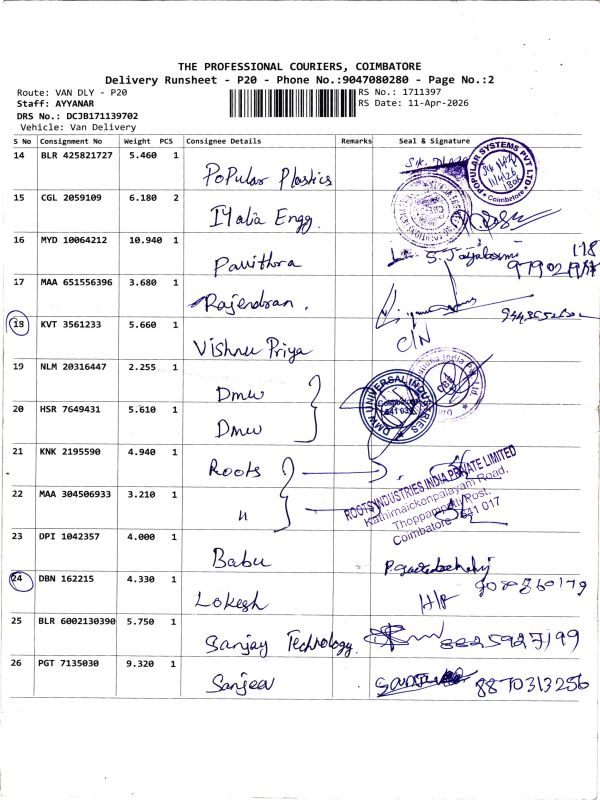 THE PROFESSIONAL COURIERS, COIMBATORE
Delivery Runsheet - P20 - Phone No.:9047080280 - Page No.:2
Route: VAN DLY - P20
RS No.: 1711397
Staff: AYYANAR
RS Date: 11-Apr-2026
DRS No.: DCJB171139702
Vehicle: Van Delivery
S No Consignment No Weight PCS Consignee Details Remarks Seal & Signature
14 BLR 425821727 5.460 1 Popular Plastics
POPULAR SYSTEMS PVT LTD
Coimbatore
15 CGL 2059109 6.180 2 Iyalia Engg.
16 MYD 10064212 10.940 1 Pavithra
S. Jayalaxmi
17 MAA 651556396 3.680 1 Rajendran.
18 KVT 3561233 5.660 1 Vishnu Priya
C/N
19 NLM 20316447 2.255 1 Dmw
DMW UNIVERSAL INDUSTRIES
Coimbatore
20 HSR 7649431 5.610 1 Dmw
21 KNK 2195590 4.940 1 Roots
ROOTS INDUSTRIES INDIA PRIVATE LIMITED
Kathirnaickenpalayam Road,
Thoppampatti Post,
Coimbatore - 641 017
22 MAA 304506933 3.210 1 "
23 DPI 1042357 4.000 1 Babu
24 DBN 162215 4.330 1 Lokesh
H/P
25 BLR 6002130390 5.750 1 Sanjay Technology.
8825927199
26 PGT 7135030 9.320 1 Sanjeev
8870313256